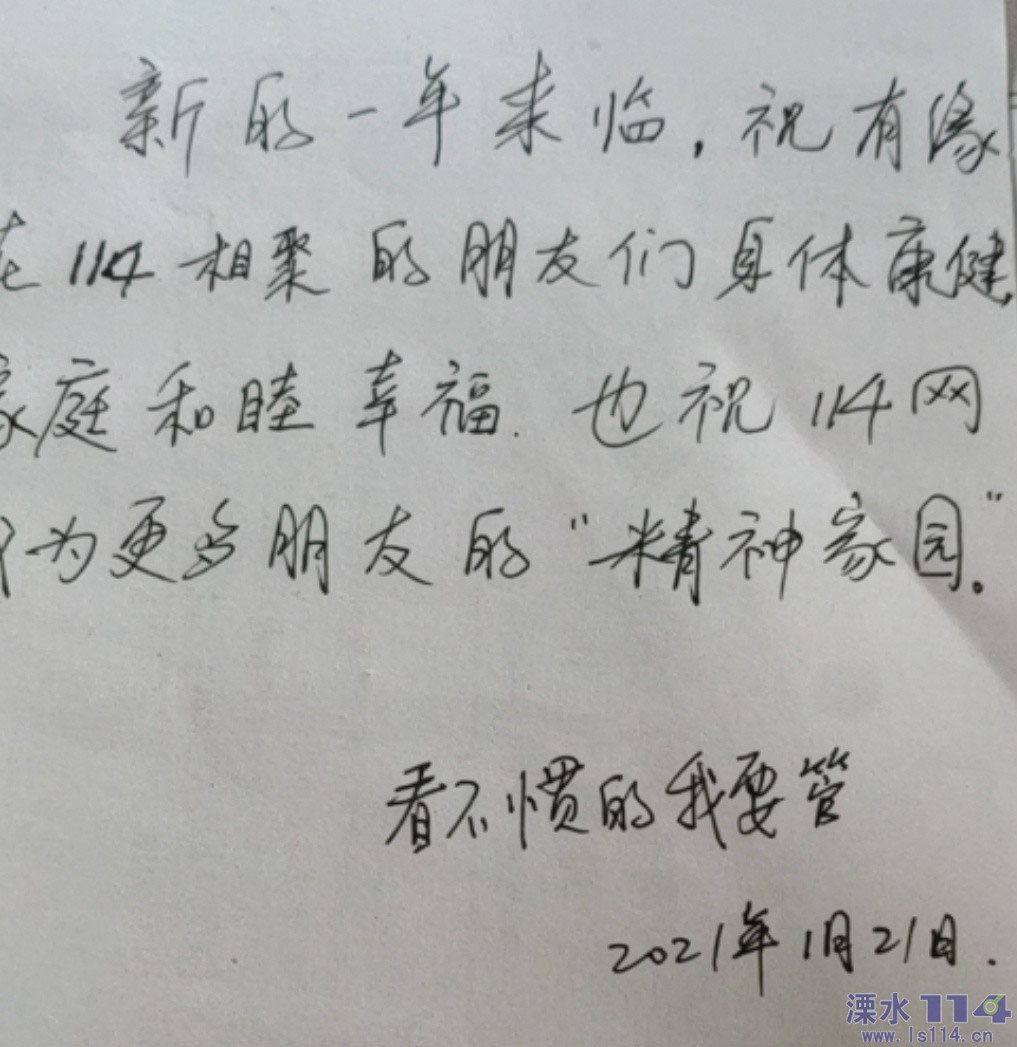 新的一年来临,祝有缘
在114相聚的朋友们身体康健,
家庭和睦幸福.也祝114网
成为更多朋友的“精神家园。”
看不惯的我要管
2021年1月21日.
溧水114
www.ls114.cn